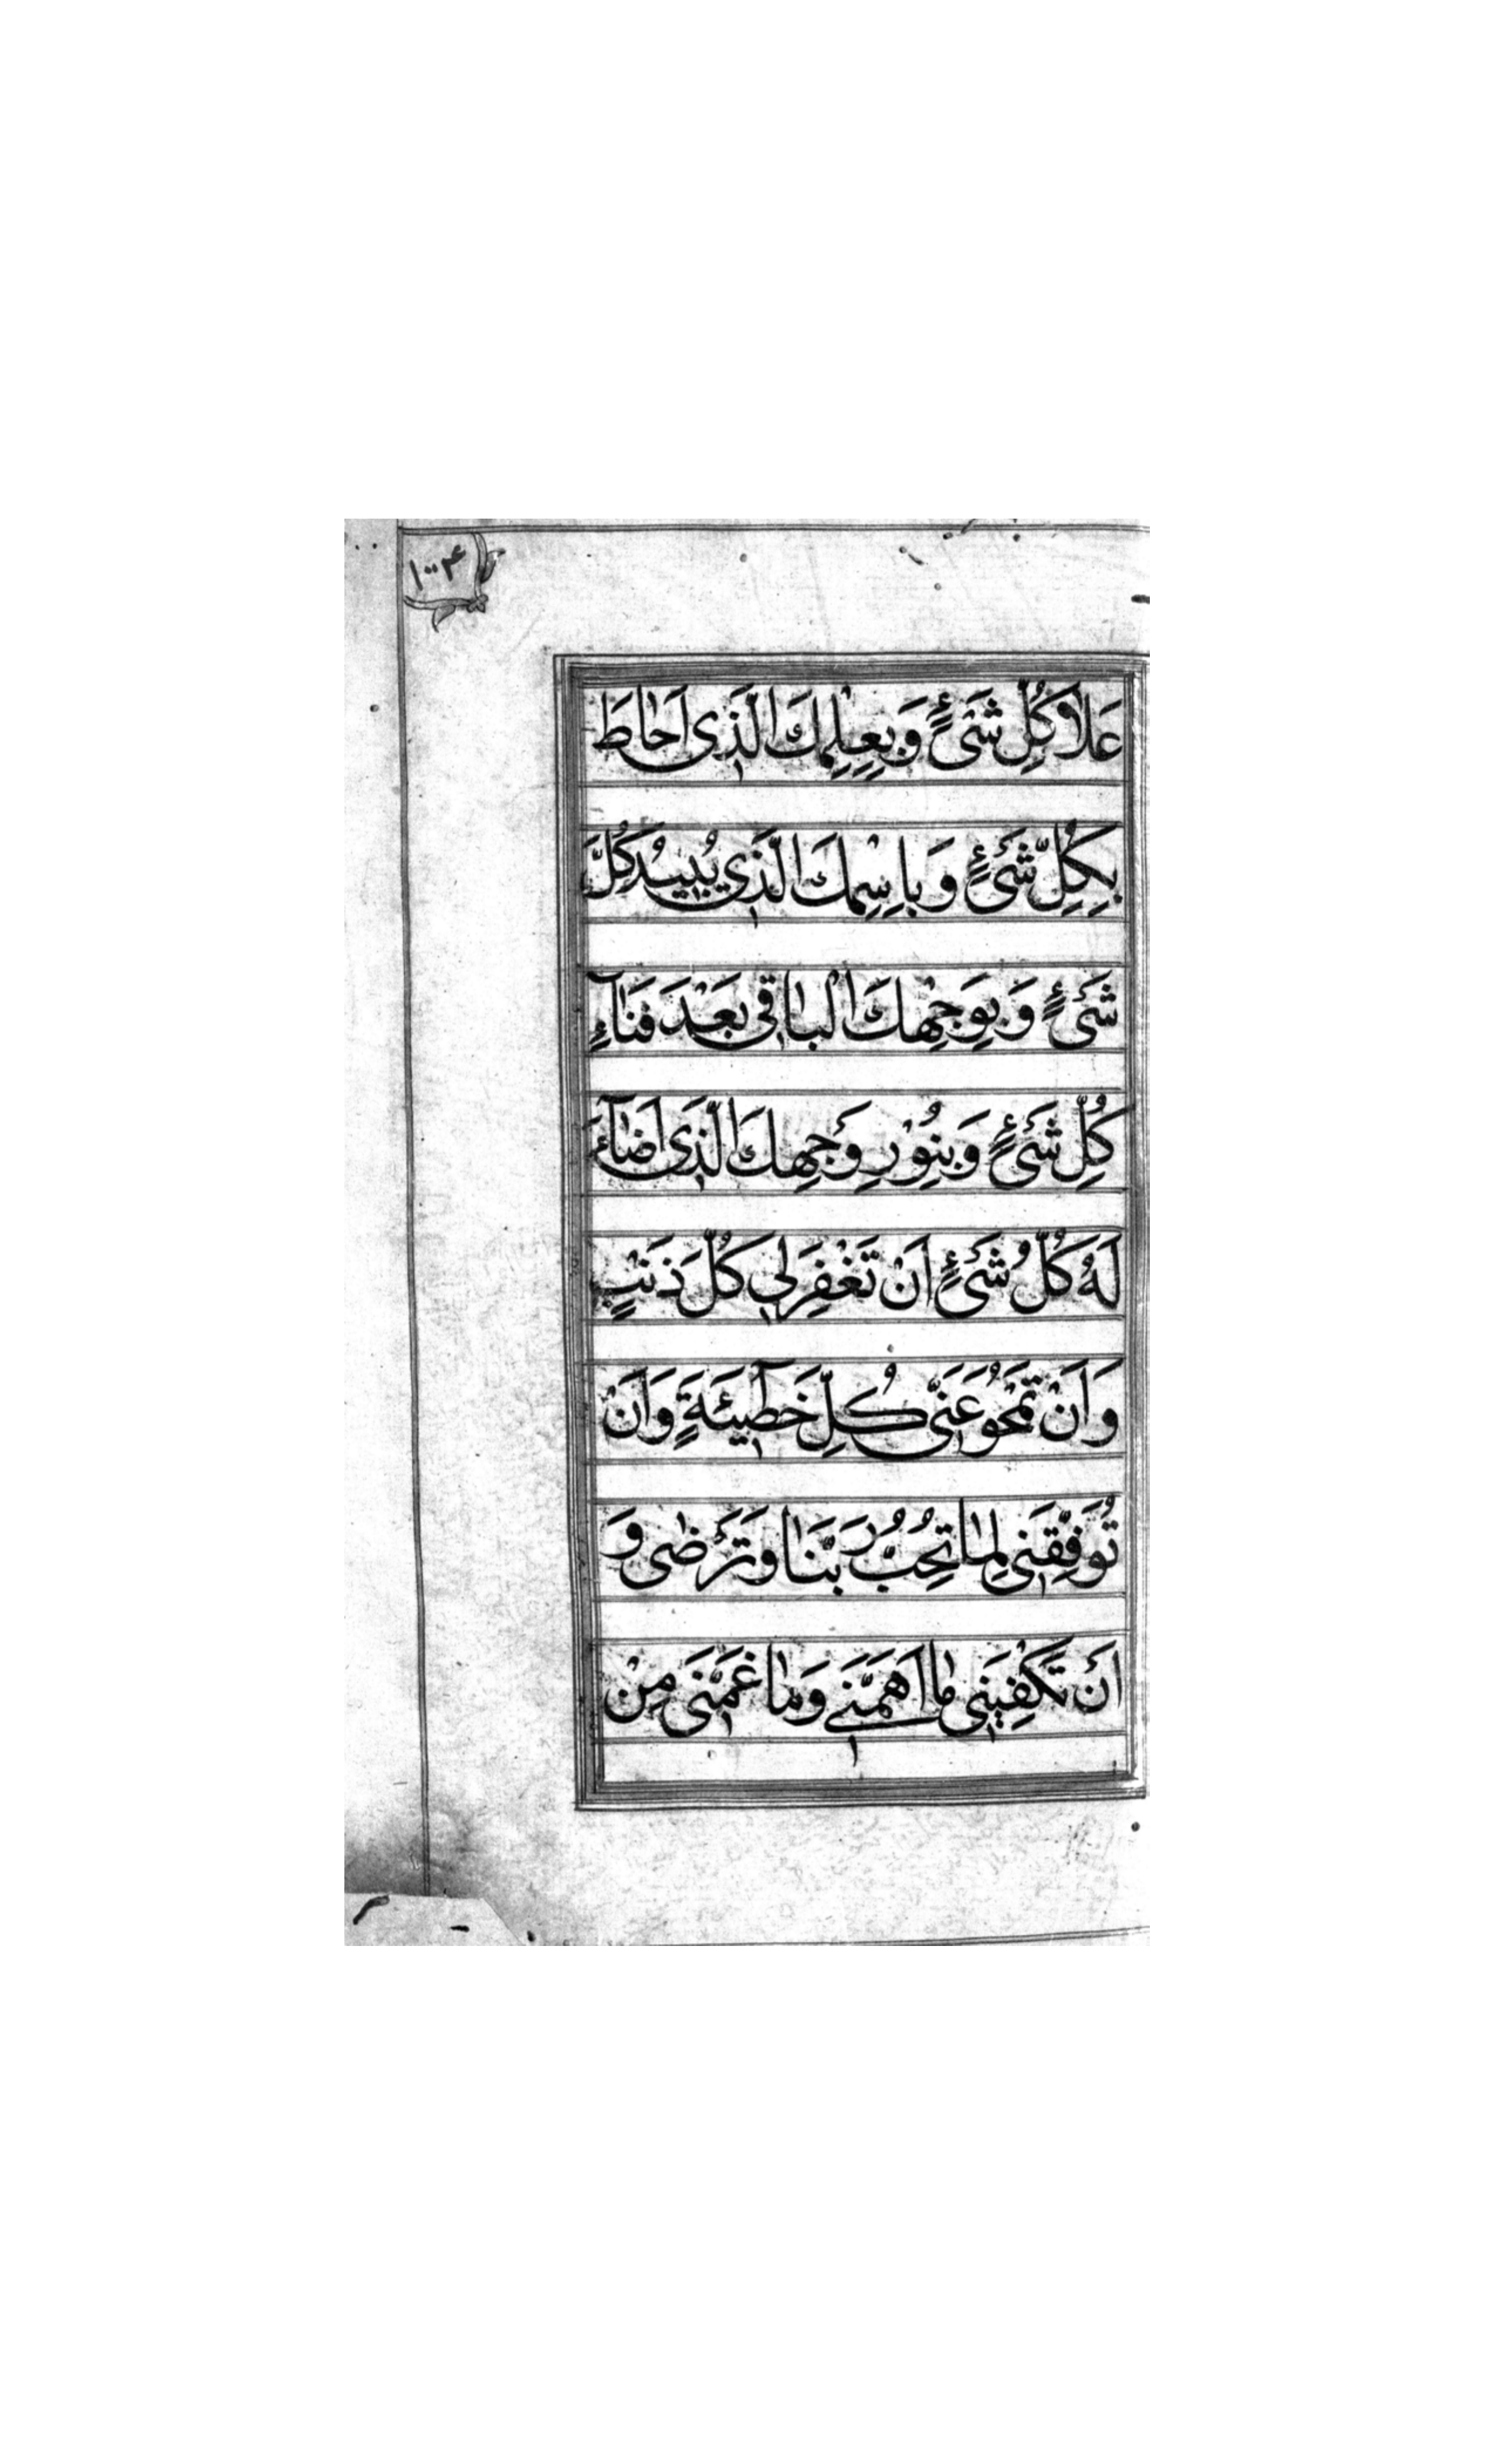 ۱۰۰۴
عَلاٰ كُلِّ شَىْءٍ وَبِعِلْمِكَ الَّذٖى اَحٰاطَ
بِكُلِّ شَىْءٍ وَبِاسْمِكَ الَّذٖي يُبٖيْدُ كُلَّ
شَىْءٍ وَبِوَجْهِكَ الْبٰاقٖى بَعْدَ فَنٰآءِ
كُلِّ شَىْءٍ وَبِنُوْرِ وَجْهِكَ الَّذٖى اَضٰآءَ
لَهُ كُلُّ شَىْءٍ اَنْ تَغْفِرَ لٖي كُلَّ ذَنْبٍ
وَ اَنْ تَمْحُوَ عَنّٖى كُلِّ خَطٖٓيئَةٍ وَاَنْ
تُوَفِّقَنٖى لِمٰا تُحِبُّ رَبَّنٰا وَ تَرْضٰى وَ
اَنْ تَكْفِيَنٖى مٰا اَهَمَّنٖے وَمٰا غَمَّنٖى مِنْ